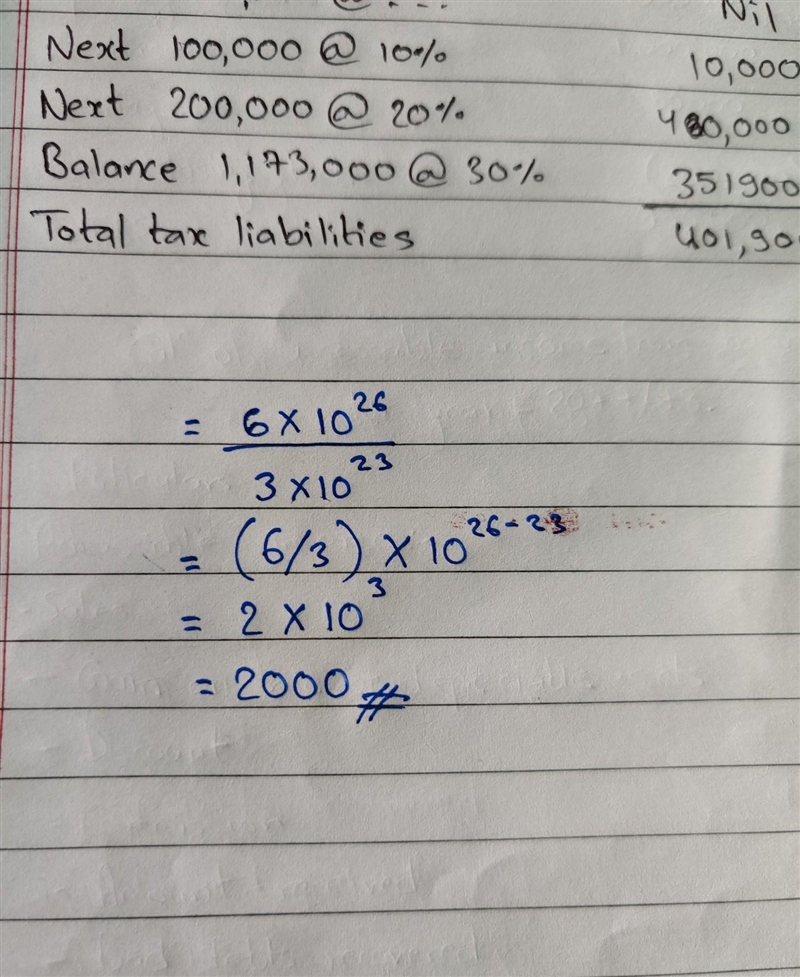 Nil
Next 100,000 @ 10% 10,000
Next 200,000 @ 20% 40,000
Balance 1,173,000 @ 30% 351900
Total tax liabilities 401,90
= 6 × 10^26
3 × 10^23
= (6/3) × 10^26-23
= 2 × 10^3
= 2000 #